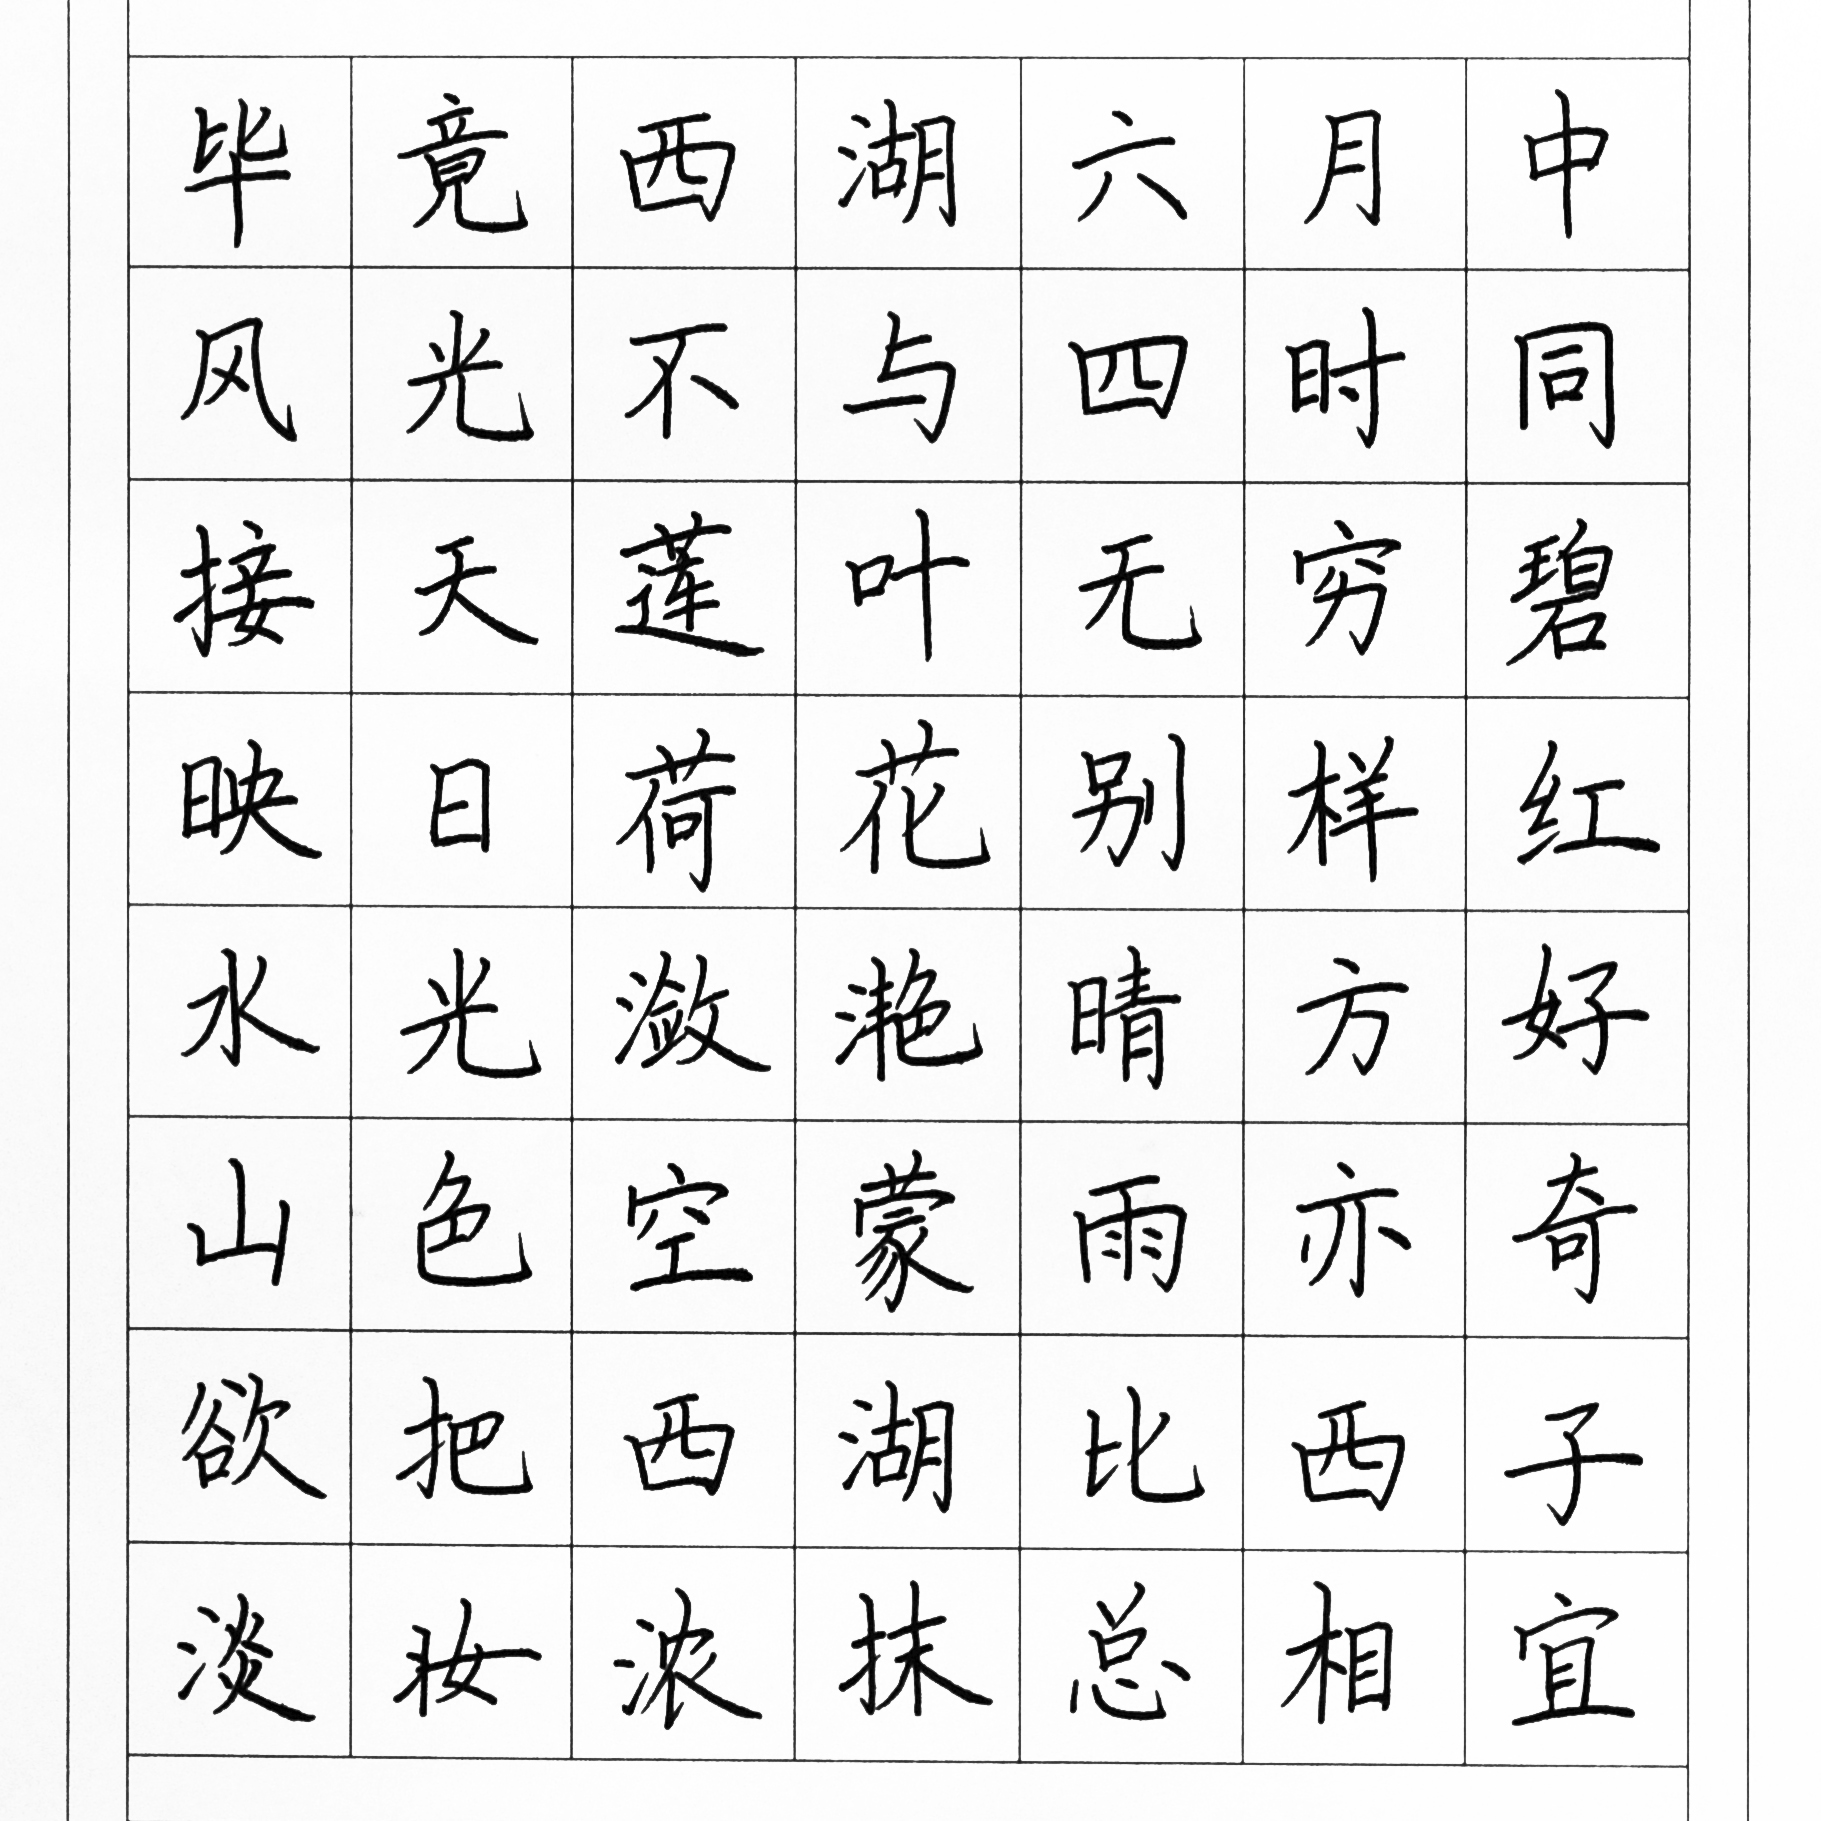 毕竟西湖六月中
风光不与四时同
接天莲叶无穷碧
映日荷花别样红
水光潋滟晴方好
山色空蒙雨亦奇
欲把西湖比西子
淡妆浓抹总相宜